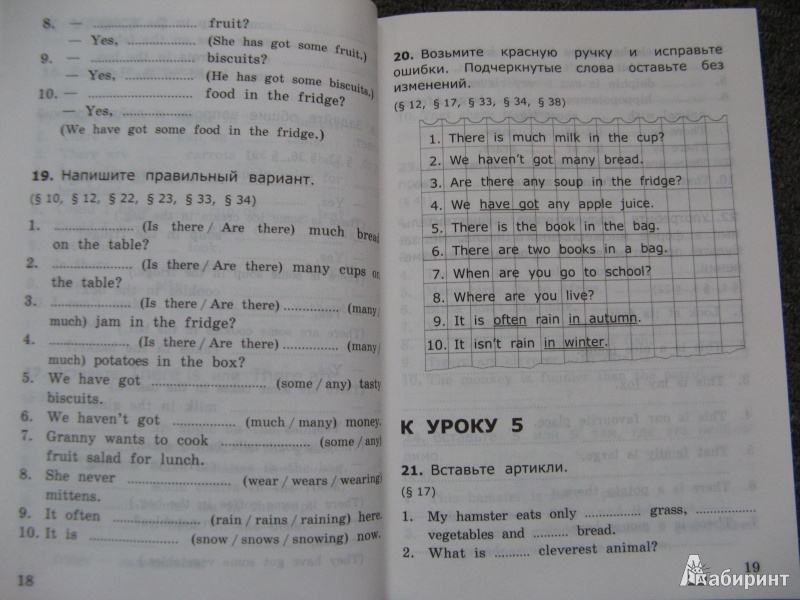 8. — .................. fruit?
— Yes, ............. (She has got some fruit.)
9. — .................. biscuits?
— Yes, ............. (He has got some biscuits.)
10. — .................. food in the fridge?
— Yes, .............
(We have got some food in the fridge.)
19. Напишите правильный вариант.
(§ 10, § 12, § 22, § 23, § 33, § 34)
1. .................. (Is there / Are there) much bread
on the table?
2. .................. (Is there / Are there) many cups on
the table?
3. .................. (Is there / Are there) ............. (many /
much) jam in the fridge?
4. .................. (Is there / Are there) ............. (many /
much) potatoes in the box?
5. We have got .................. (some / any) tasty
biscuits.
6. We haven't got .................. (much / many) money.
7. Granny wants to cook ............. (some / any)
fruit salad for lunch.
8. She never .................. (wear / wears / wearing)
mittens.
9. It often .................. (rain / rains / raining) here.
10. It is .................. (snow / snows / snowing) now.
18
20. Возьмите красную ручку и исправьте
ошибки. Подчеркнутые слова оставьте без
изменений.
(§ 12, § 17, § 33, § 34, § 38)
1. There is much milk in the cup?
2. We haven't got many bread.
3. Are there any soup in the fridge?
4. We have got any apple juice.
5. There is the book in the bag.
6. There are two books in a bag.
7. When are you go to school?
8. Where are you live?
9. It is often rain in autumn.
10. It isn't rain in winter.
К УРОКУ 5
21. Вставьте артикли.
(§ 17)
1. My hamster eats only ............. grass, .............
vegetables and ............. bread.
2. What is ......... cleverest animal?
19
Лабиринт